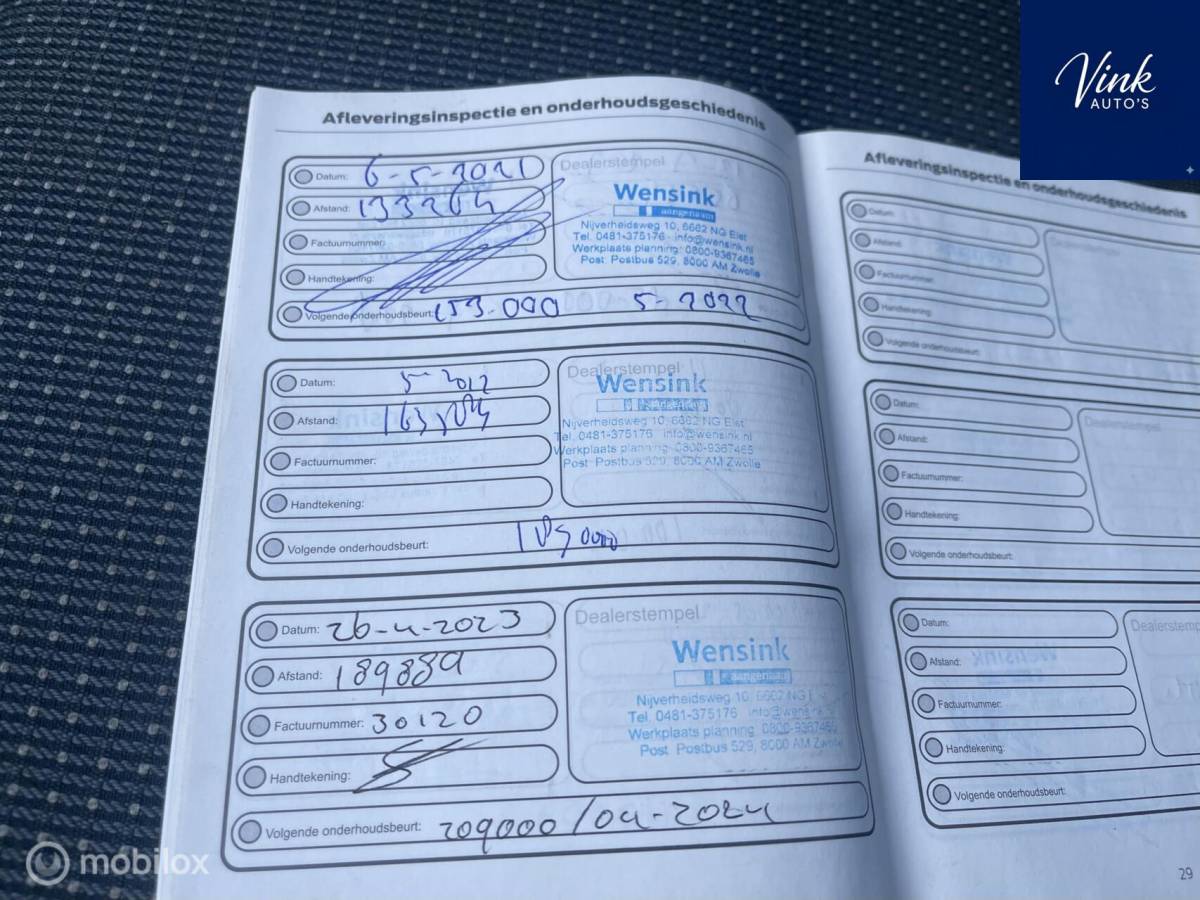 Vink
AUTO'S
Afleveringsinspectie en onderhoudsgeschiedenis
Datum: 6-5-2021
Afstand: 133264
Factuurnummer:
Handtekening:
Volgende onderhoudsbeurt: 153.000 5-2022
Dealerstempel
Wensink
aangenaam
Nijverheidsweg 10, 6662 NG Elst
Tel. 0481-375176 - info@wensink.nl
Werkplaats planning: 0800-9367465
Post: Postbus 529, 8000 AM Zwolle
Datum:
Afstand:
Factuurnummer:
Handtekening:
Volgende onderhoudsbeurt:
Dealerstempel
Wensink
Nijverheidsweg 10, 6662 NG Elst
Tel. 0481-375176 info@wensink.nl
Werkplaats planning: 0800-9367465
Post: Postbus 529, 8000 AM Zwolle
Datum: 26-4-2023
Afstand: 189889
Factuurnummer: 30120
Handtekening:
Volgende onderhoudsbeurt: 209000/04-2024
Dealerstempel
Wensink
aangenaam
Nijverheidsweg 10, 6662 NG Elst
Tel. 0481-375176 info@wensink.nl
Werkplaats planning: 0800-9367465
Post: Postbus 529, 8000 AM Zwolle
Afleveringsinspectie en onderhoudsgeschiedenis
Datum:
Afstand:
Factuurnummer:
Handtekening:
Volgende onderhoudsbeurt:
Datum:
Afstand:
Factuurnummer:
Handtekening:
Volgende onderhoudsbeurt:
Dealerstempel
Datum:
Afstand:
Factuurnummer:
Handtekening:
Volgende onderhoudsbeurt:
Dealerstemp
29
mobilox